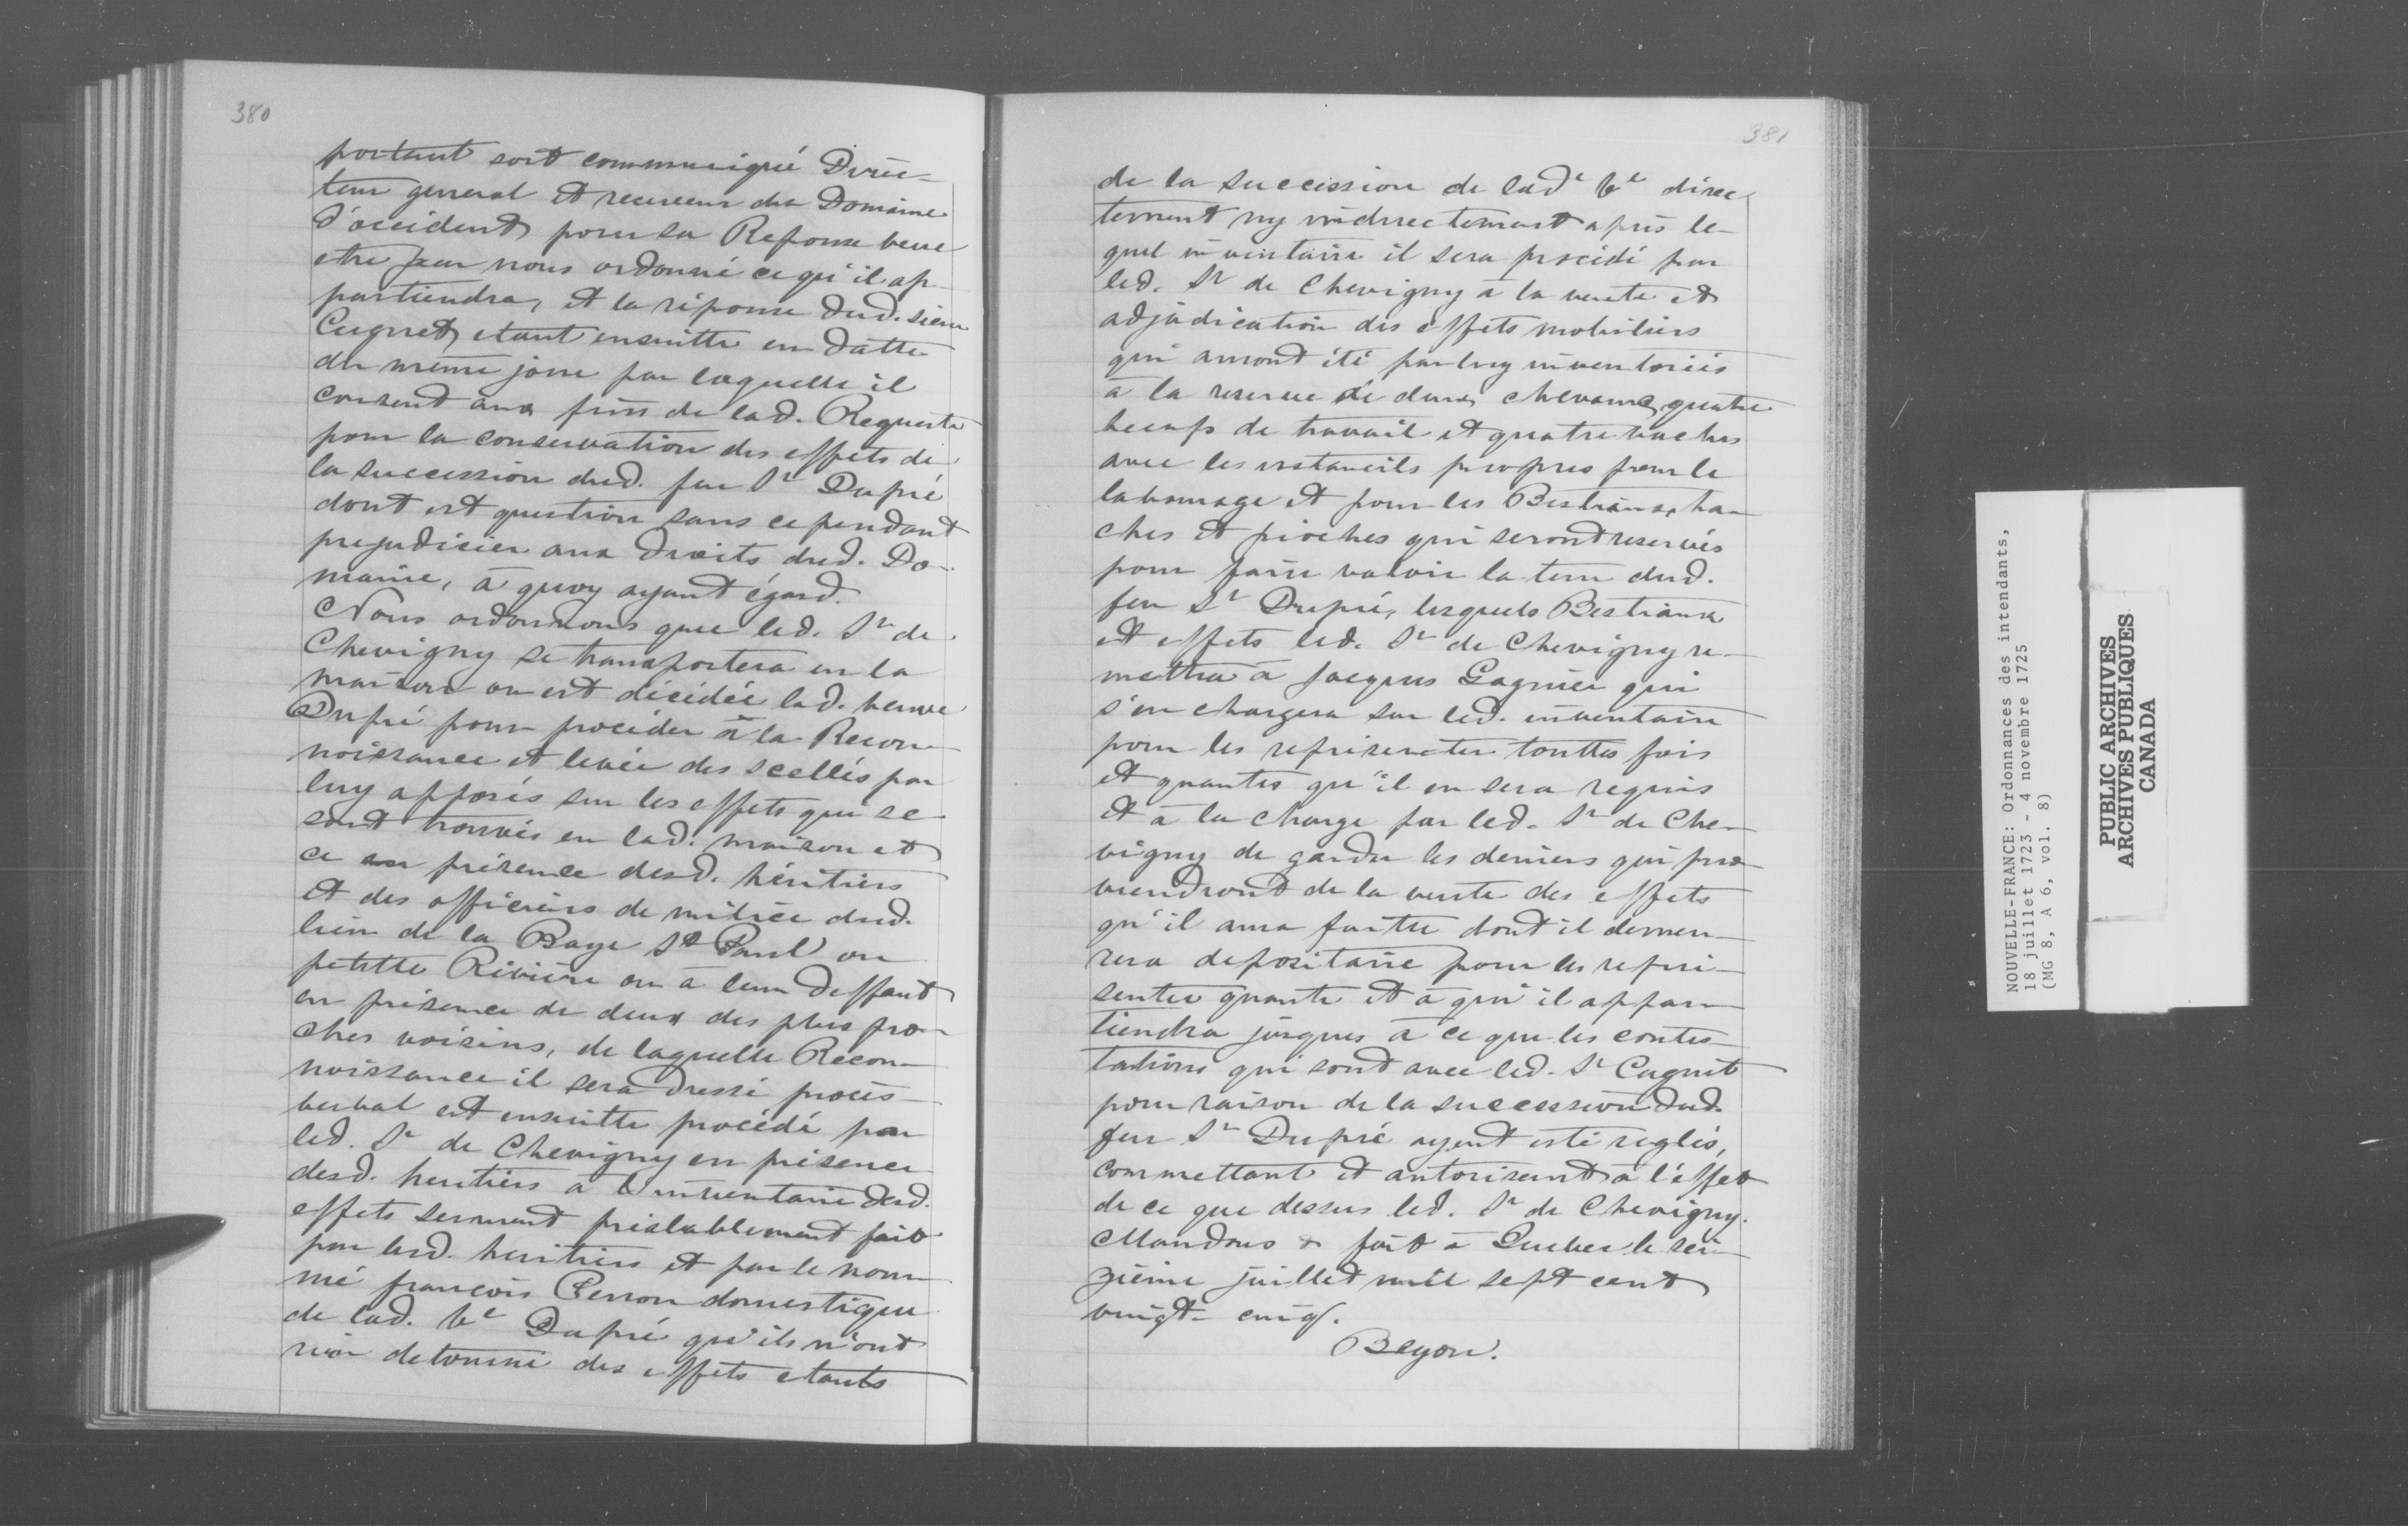 380
portant soit communiqué Direc-
teur general et receveur du Domaine
d'occident pour sa Reponse veue
etre par nous ordonné ce qu'il ap-
partiendra, et la réponse dud. sieur
Cugnet etant ensuitte en datte
du meme jour par laquelle il
consent aux fins de lad. Requeste
pour la conservation des effets de
la succession dud. feu Sr Dupré
dont est question sans cependant
prejudicier aux droits dud. Do-
maine, à quoy ayant égard.
Nous ordonnons que led. Sr de
Chevigny se transportera en la
maison ou est décédée lad. veuve
Dupré pour proceder à la Recon-
noissance et levée des scellés par
luy apposés sur les effets qui se
sont trouvés en lad. maison et
ce en présence desd. héritiers
et des officiers de milice dud.
lieu de la Baye St Paul ou
petitte Rivière ou à leur deffaut
en présence de deux des plus pro-
ches voisins, de laquelle Recon-
noissance il sera dressé procès-
verbal et ensuitte procédé par
led. Sr de Chevigny en présence
desd. heritiers à l'inventaire desd.
effets serment préalablement fait
par lesd. heritiers et par le nom-
mé françois Perron domestique
de lad. Ve Dupré qu'ils n'ont
rien detourné des effets etants
381
de la succession de lad. Ve direc-
tement ny indirectement après le-
quel inventaire il sera procédé par
led. Sr de Chevigny à la vente et
adjudication des effets mobiliers
qui auront été par luy inventoriés
à la reserve de deux chevaux, quatre
beufs de travail et quatre vaches
avec les ustancils propres pour le
labourage et pour les Bestiaux, ha-
ches et pioches qui seront reservés
pour faire valoir la terre dud.
feu Sr Dupré, lesquels Bestiaux
et effets led. Sr de Chevigny re-
mettra à Jacques Gagnier qui
s'en chargera sur led. inventaire
pour les représenter touttes fois
et quantes qu'il en sera requis
et à la charge par led. Sr de Che-
vigny de garder les deniers qui pro-
viendront de la vente des effets
qu'il aura faitte dont il demeu-
rera depositaire pour les repré-
senter quante et à qui il appar-
tiendra jusques à ce que les contes-
tations qui sont avec led. Sr Cugnet
pour raison de la succession dud.
feu Sr Dupré ayent esté reglés,
commettant et autorisant à l'effet
de ce que dessus led. Sr de Chevigny.
Mandons & fait à Quebec le sei-
zième juillet mil sept cent
vingt-cinq.
Begon.
NOUVELLE-FRANCE: Ordonnances des intendants,
18 juillet 1723 - 4 novembre 1725
(MG 8, A 6, vol. 8)
PUBLIC ARCHIVES
ARCHIVES PUBLIQUES
CANADA